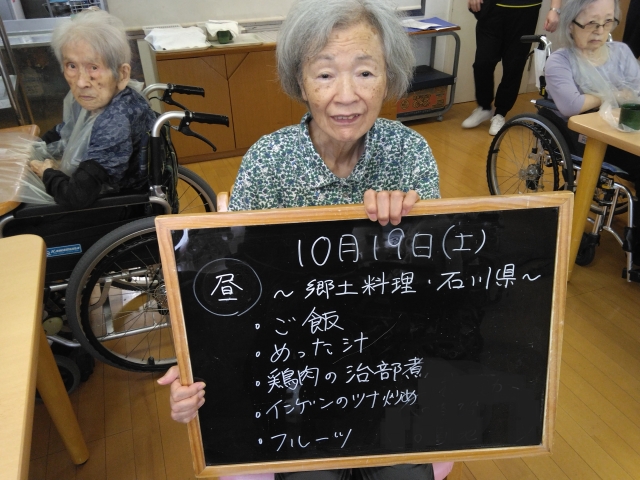 10月19日(土)
昼
～郷土料理・石川県～
・ご飯
・めった汁
・鶏肉の治部煮
・インゲンのツナ炒め
・フルーツ